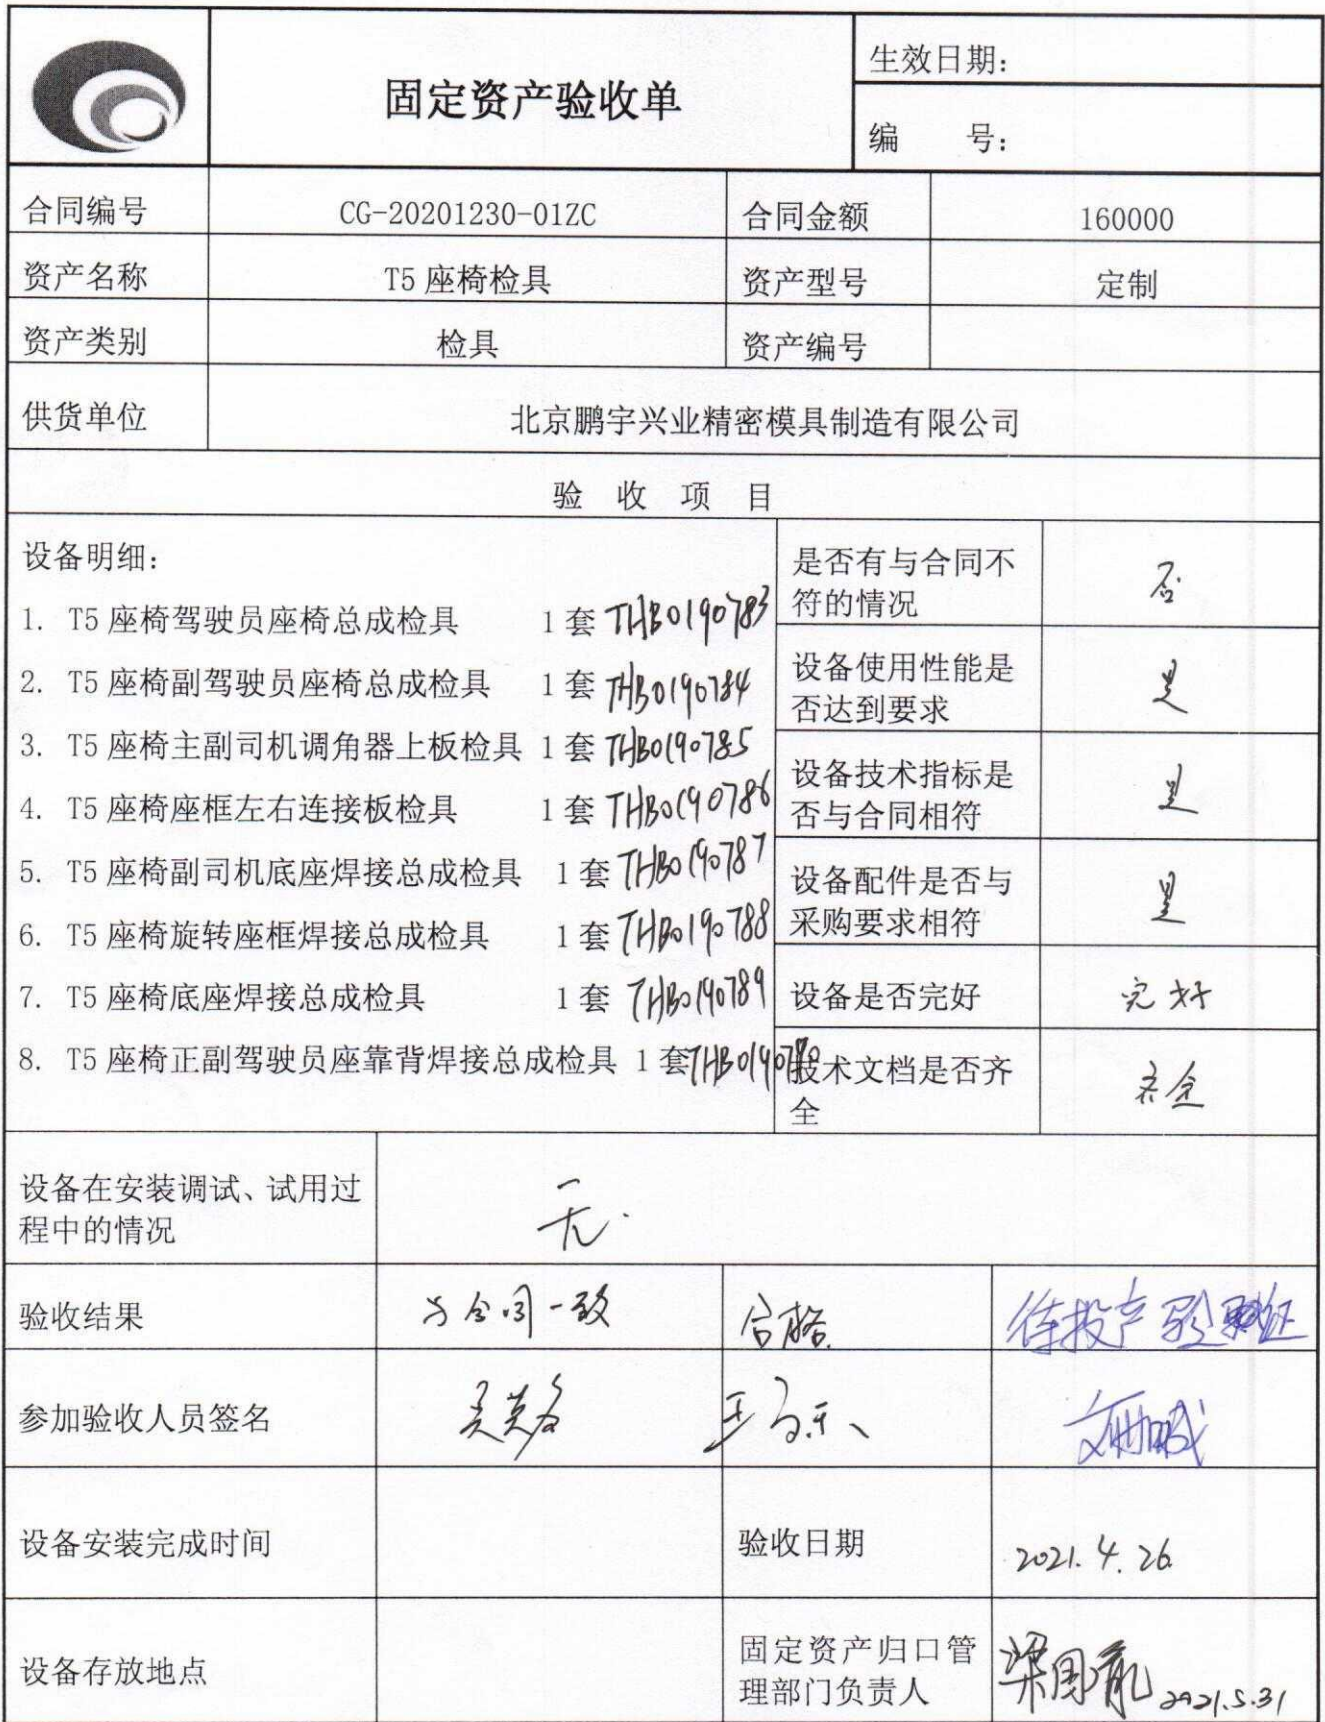 固定资产验收单
生效日期:
编 号:
合同编号 CG-20201230-01ZC 合同金额 160000
资产名称 T5座椅检具 资产型号 定制
资产类别 检具 资产编号
供货单位 北京鹏宇兴业精密模具制造有限公司
验 收 项 目
设备明细:
1. T5座椅驾驶员座椅总成检具 1套 THB0190783
2. T5座椅副驾驶员座椅总成检具 1套 THB0190784
3. T5座椅主副司机调角器上板检具 1套 THB0190785
4. T5座椅座框左右连接板检具 1套 THB0190786
5. T5座椅副司机底座焊接总成检具 1套 THB0190787
6. T5座椅旋转座框焊接总成检具 1套 THB0190788
7. T5座椅底座焊接总成检具 1套 THB0190789
8. T5座椅正副驾驶员座靠背焊接总成检具 1套
是否有与合同不
符的情况 否
设备使用性能是
否达到要求 是
设备技术指标是
否与合同相符 是
设备配件是否与
采购要求相符 是
设备是否完好 完好
技术文档是否齐
全 齐全
设备在安装调试、试用过
程中的情况 无.
验收结果 与合同一致 合格. 待投产验证
参加验收人员签名
设备安装完成时间 验收日期 2021.4.26
设备存放地点 固定资产归口管
理部门负责人 2021.5.31